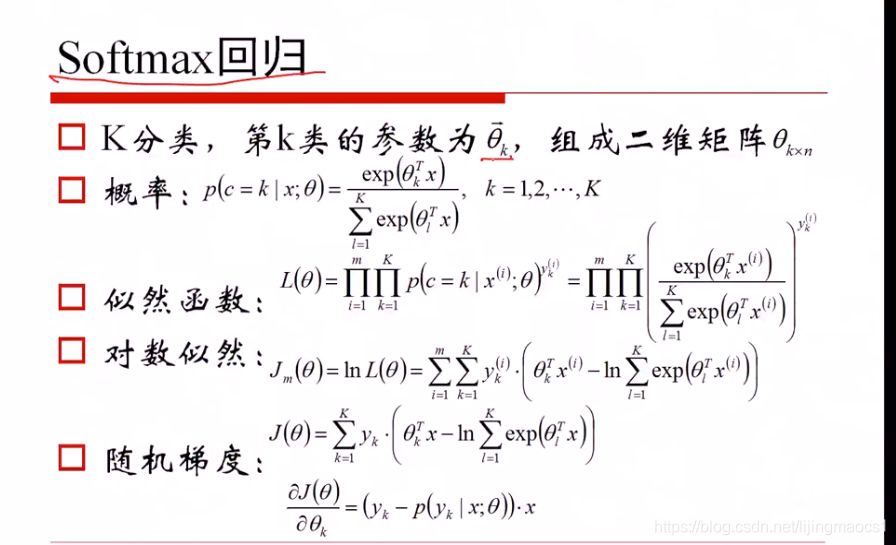 Softmax回归
K分类，第k类的参数为 $\vec{\theta}_k$，组成二维矩阵 $\theta_{k\times n}$
概率： $p(c=k|x;\theta)=\frac{\exp(\theta_k^T x)}{\sum_{l=1}^{K}\exp(\theta_l^T x)}, \quad k=1,2,\cdots,K$
似然函数： $L(\theta)=\prod_{i=1}^{m}\prod_{k=1}^{K}p(c=k|x^{(i)};\theta)^{y_k^{(i)}}=\prod_{i=1}^{m}\prod_{k=1}^{K}\left(\frac{\exp(\theta_k^T x^{(i)})}{\sum_{l=1}^{K}\exp(\theta_l^T x^{(i)})}\right)^{y_k^{(i)}}$
对数似然： $J_m(\theta)=\ln L(\theta)=\sum_{i=1}^{m}\sum_{k=1}^{K}y_k^{(i)}\cdot\left(\theta_k^T x^{(i)}-\ln\sum_{l=1}^{K}\exp(\theta_l^T x^{(i)})\right)$
$J(\theta)=\sum_{k=1}^{K}y_k\cdot\left(\theta_k^T x-\ln\sum_{l=1}^{K}\exp(\theta_l^T x)\right)$
随机梯度：
$\frac{\partial J(\theta)}{\partial\theta_k}=(y_k-p(y_k|x;\theta))\cdot x$
https://blog.csdn.net/lijingmaocs1